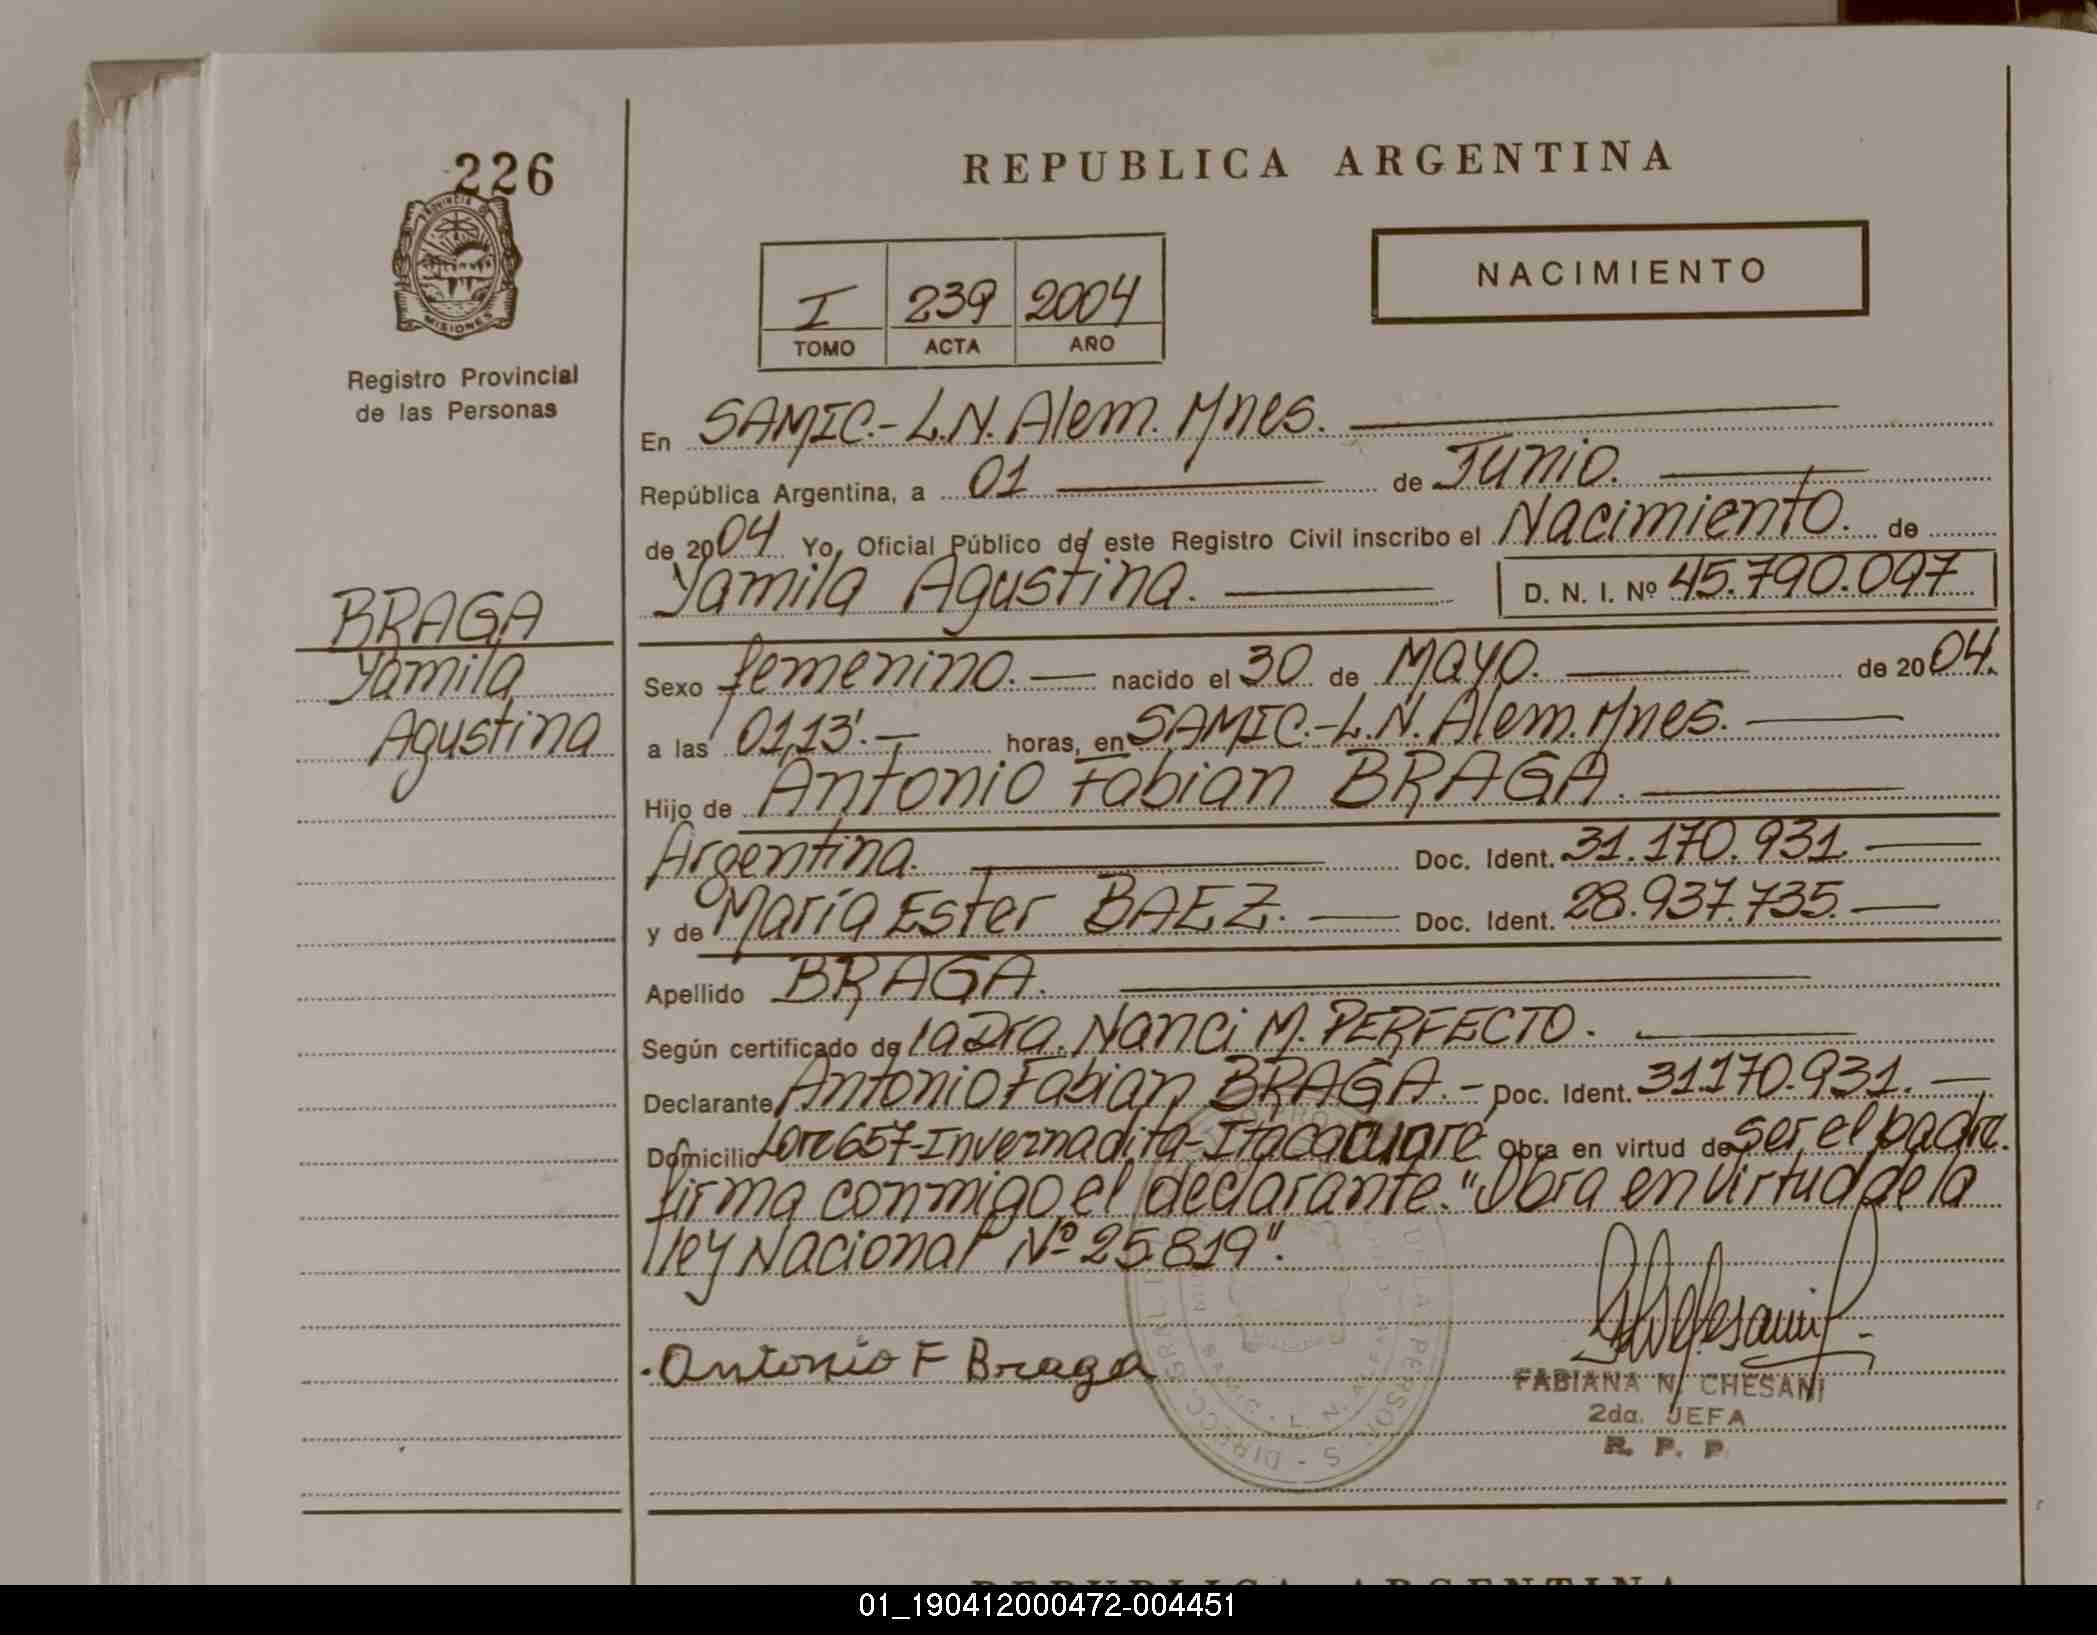 226
PROVINCIA DE
MISIONES
Registro Provincial
de las Personas
BRAGA
Yamila
Agustina
REPUBLICA ARGENTINA
NACIMIENTO
I 239 2004
TOMO ACTA AÑO
En SAMIC.- L.N. Alem. Mnes.
República Argentina, a 01 de Junio.
de 2004 Yo, Oficial Público de este Registro Civil inscribo el Nacimiento. de
Yamila Agustina. D. N. I. Nº 45.790.097
Sexo femenino. nacido el 30 de MAYO. de 2004.
a las 01,13'.- horas, en SAMIC.-L.N. Alem. Mnes.
Hijo de Antonio Fabian BRAGA.
Argentina. Doc. Ident. 31.170.931.
y de María Ester BAEZ. Doc. Ident. 28.937.735.
Apellido BRAGA.
Según certificado de la Dra. Nanci M. PERFECTO.
Declarante Antonio Fabian BRAGA.- Doc. Ident. 31.170.931.
Domicilio Lote 657-Invernadita-Itacaruaré Obra en virtud de ser el padre.
firma conmigo el declarante. "Obra en virtud de la
ley Nacional Nº 25819".
Antonio F Braga
FABIANA N. CHESANI
2da. JEFA
R. P. P
REPUBLICA ARGENTINA
01_190412000472-004451